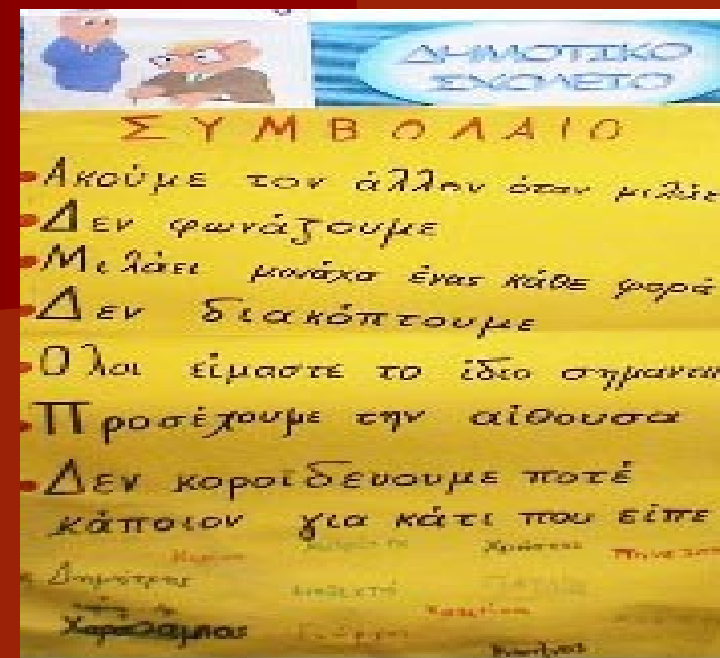 ΔΗΜΟΤΙΚΟ
ΣΧΟΛΕΙΟ
ΣΥΜΒΟΛΑΙΟ
Ακούμε τον άλλον όταν μιλάει
Δεν φωνάζουμε
Μιλάει μονάχα ένας κάθε φορά
Δεν διακόπτουμε
Όλοι είμαστε το ίδιο
Προσέχουμε την αίθουσα
Δεν κοροϊδεύουμε ποτέ
κάποιον για κάτι που είπε
Δημήτρης
Χαράλαμπος